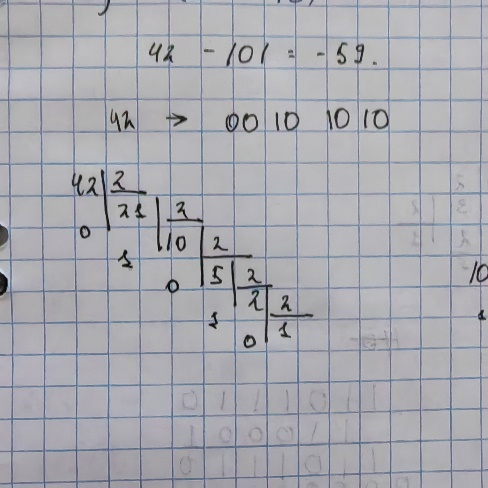 42 - 101 = -59.
42 → 0010 1010
42 2
21 2
0 10 2
1 5 2
0 2 2
1 1
0
10
1